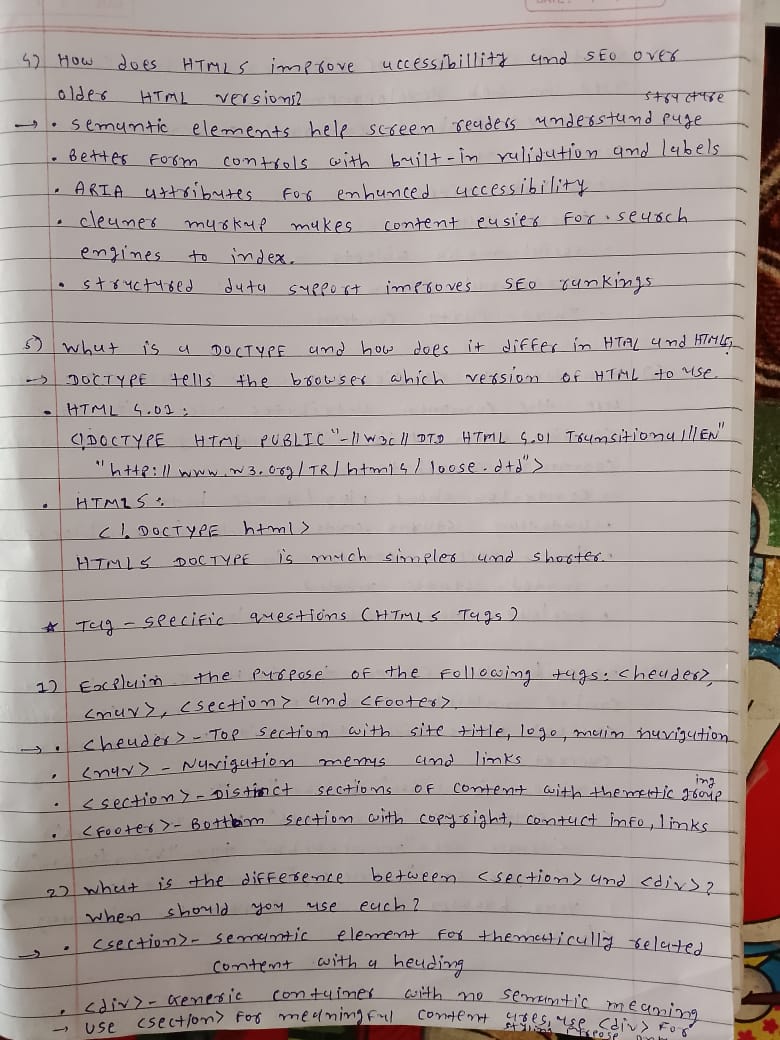 4) How does HTML5 improve accessibillity and SEO over
older HTML versions?
→ • semantic elements help screen readers understand page structure
• Better form controls with built-in validation and labels
• ARIA attributes for enhanced accessibility
• cleaner markup makes content easier for search
engines to index.
• structured data support improves SEO rankings
5) what is a DOCTYPE and how does it differ in HTML and HTML5
→ DOCTYPE tells the browser which version of HTML to use.
• HTML 4.01:
<!DOCTYPE HTML PUBLIC "-//W3C// DTD HTML 4.01 Transitional//EN"
"http://www.w3.org/TR/html4/loose.dtd">
• HTML5:
<!DOCTYPE html>
HTML5 DOCTYPE is much simpler and shorter.
★ Tag-specific questions (HTML5 Tags)
1) Explain the purpose of the following tags: <header>,
<nav>, <section> and <footer>.
→ • <header>- Top section with site title, logo, main navigation
• <nav> - Navigation menus and links
• <section>- Distinct sections of content with thematic grouping
• <footer>- Bottom section with copyright, contact info, links
2) what is the difference between <section> and <div>?
when should you use each?
→ • <section>- semantic element for thematically related
content with a heading
• <div>- Generic container with no semantic meaning
→ use <section> for meaningful content use <div> for